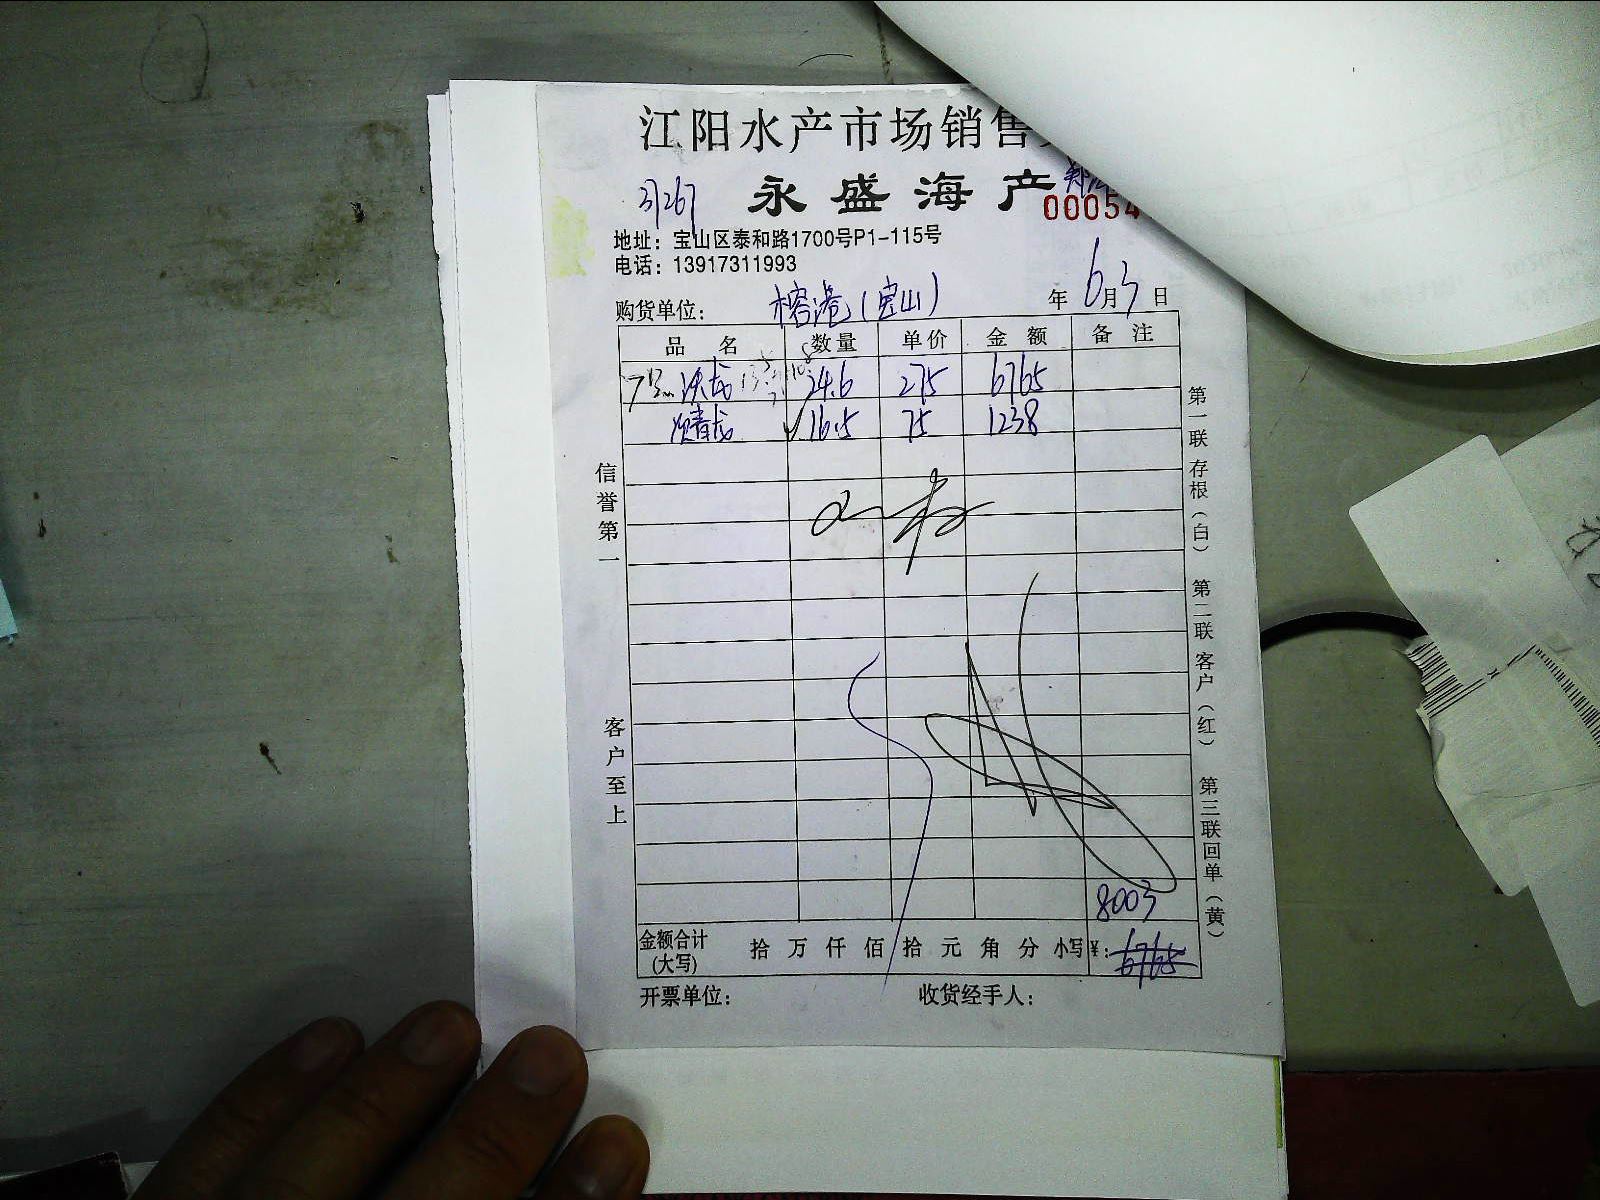 江阳水产市场销售
永盛海产
00054
地址：宝山区泰和路1700号P1-115号
电话：13917311993
购货单位：榕港(宝山) 年 6月3日
品 名 数量 单价 金 额 备 注
24.6 275 6765
青龙 16.5 75 1238
信誉第一
客户至上
第一联 存根（白） 第二联 客户（红） 第三联 回单（黄）
8003
金额合计(大写) 拾 万 仟 佰 拾 元 角 分 小写¥: 6765
开票单位: 收货经手人: